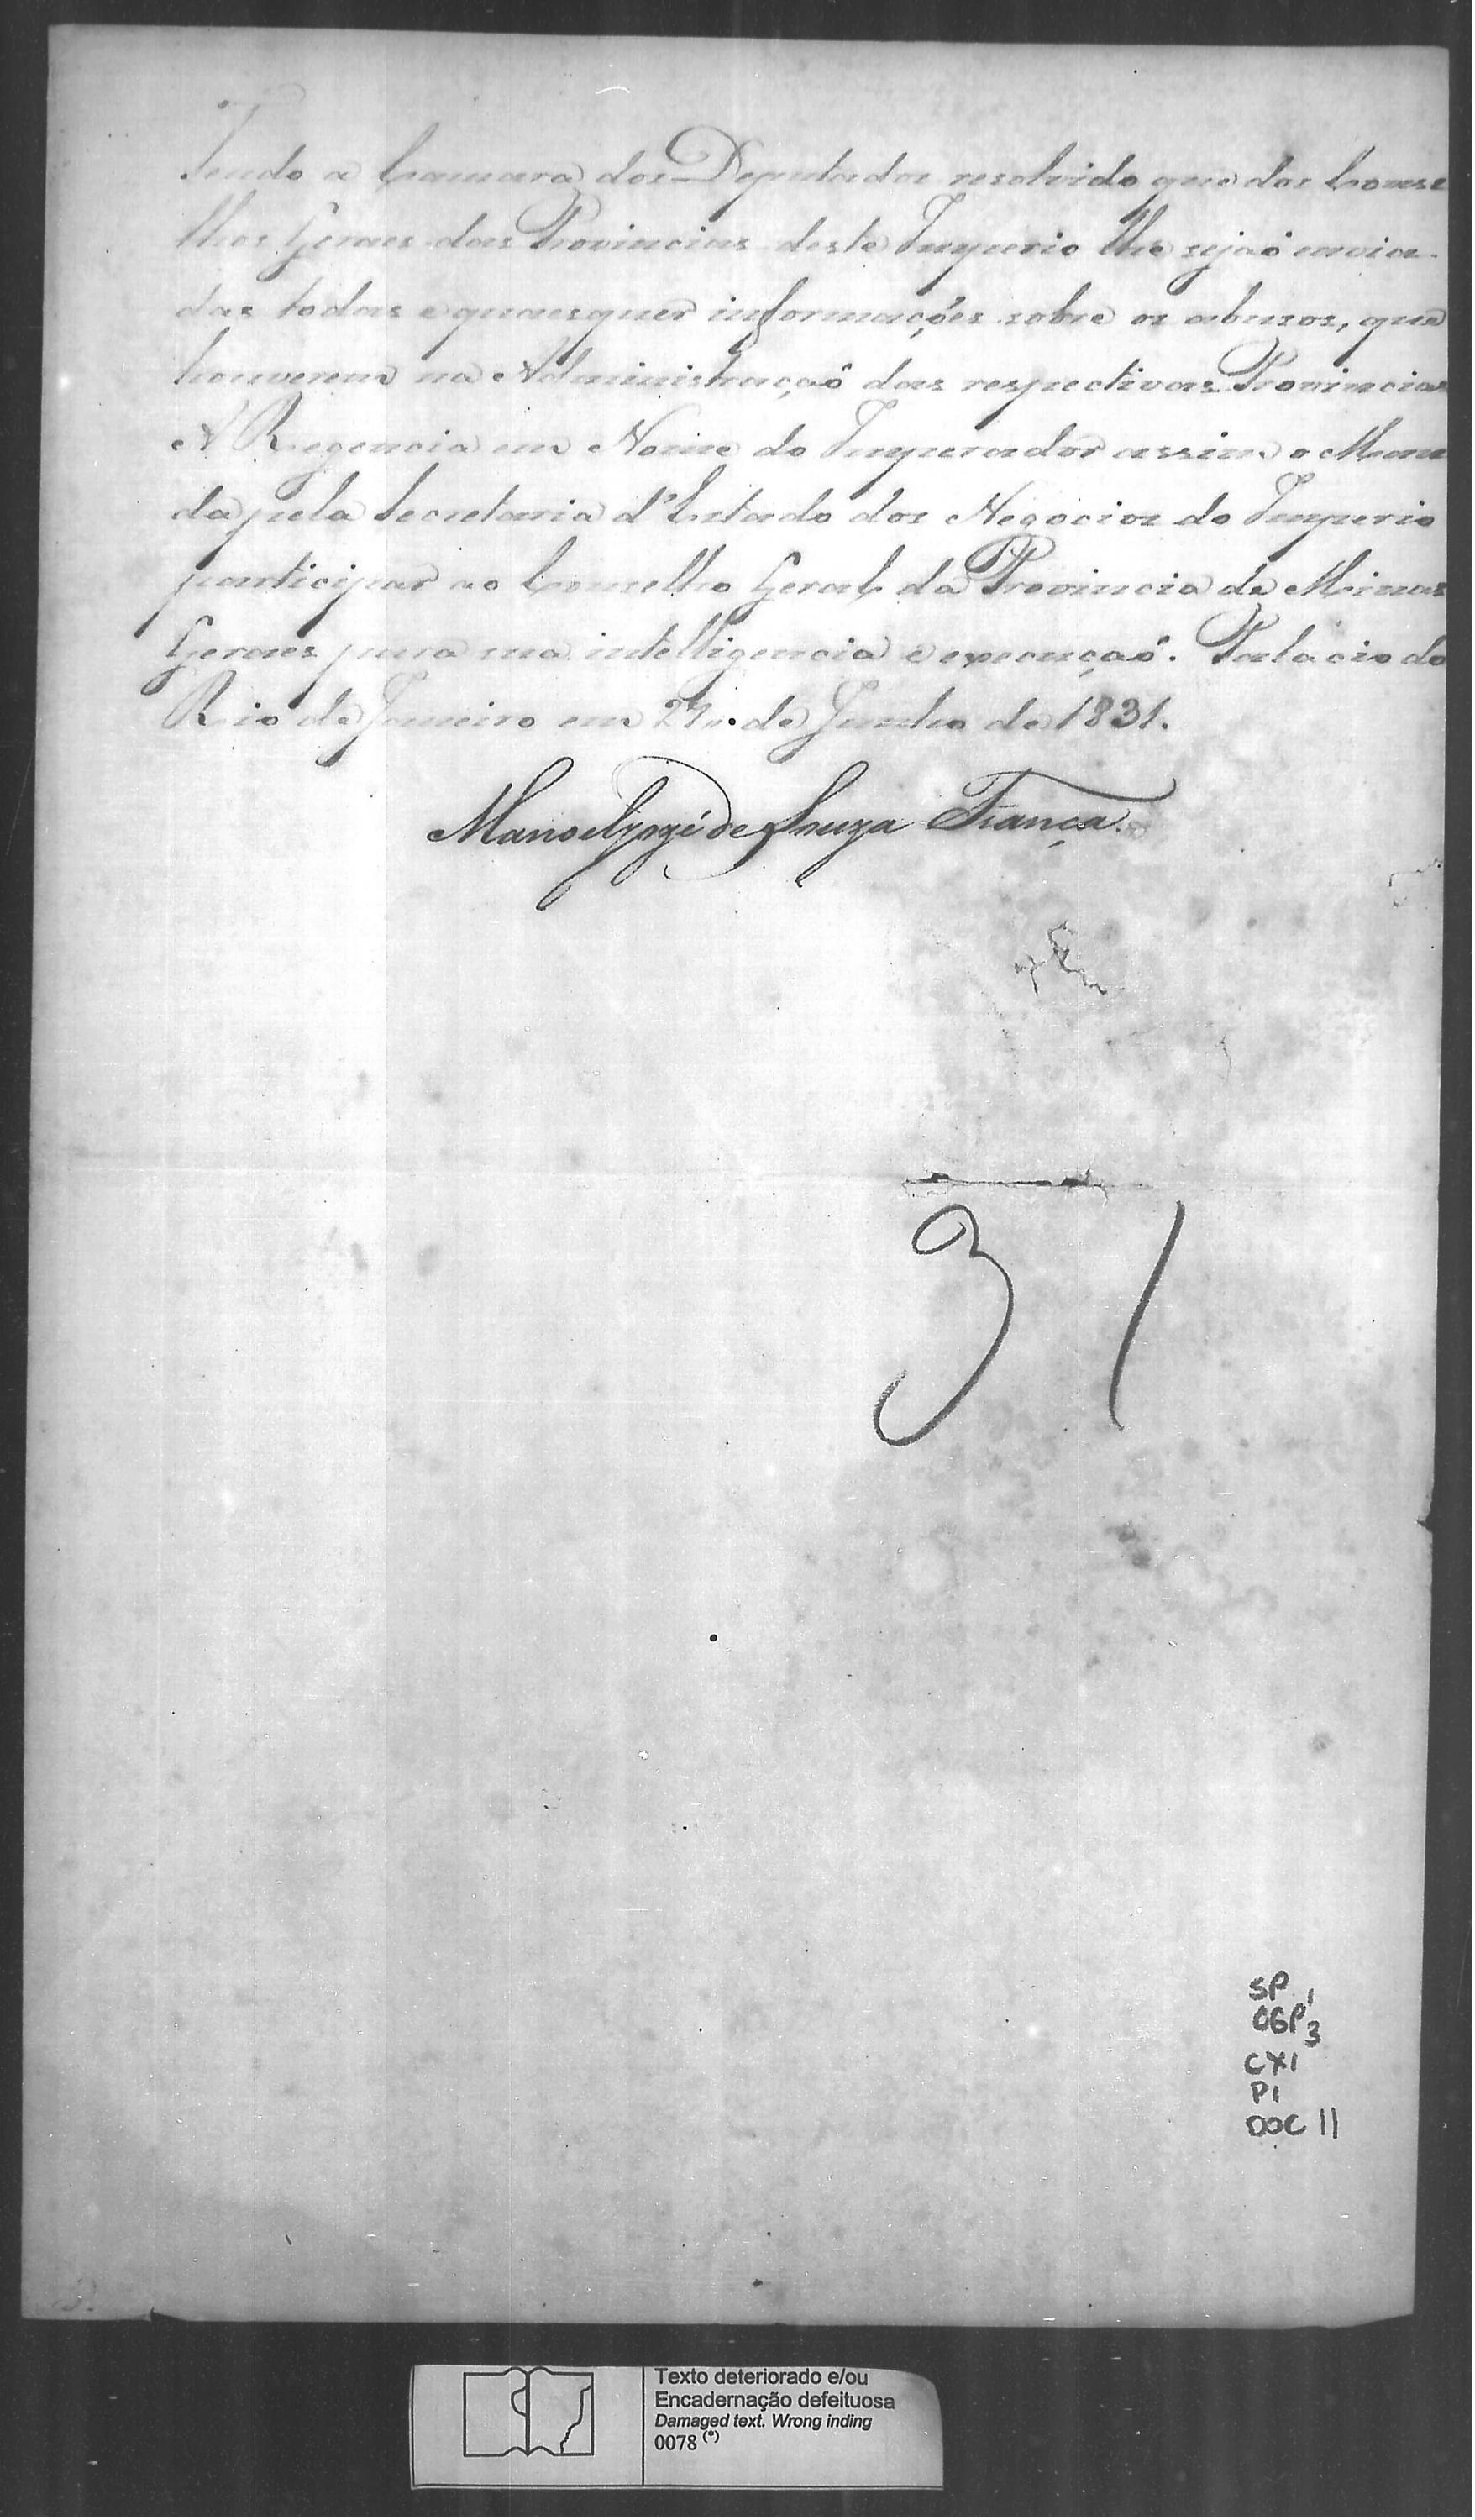 Tendo a Camara dos Deputados resolvido que dos Conse
lhos Geraes das Provincias deste Imperio lhe sejaõ envia-
das todas e quaesquer informações sobre os abusos, que
houverem na Administraçaõ das respectivas Provincias
A Regencia em Nome do Imperador assim o Man
da pela Secretaria d'Estado dos Negocios do Imperio
participar ao Conselho Geral da Provincia de Minas
Geraes para sua intelligencia e execuçaõ. Palacio do
Rio de Janeiro em de Junho de 1831.
Manoel José de Souza França.
31
SP
CGP 1/3
CX1
P1
DOC 11
Texto deteriorado e/ou
Encadernação defeituosa
Damaged text. Wrong inding
0078 (*)